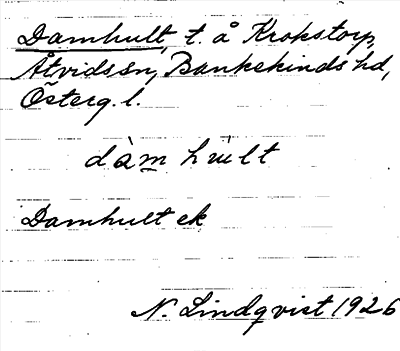 Damhult, t. å Krokstorp,
Åtvids sn, Bankekinds hd,
Österg. l.
dàm hùlt
Damhult ek
N. Lindqvist 1926